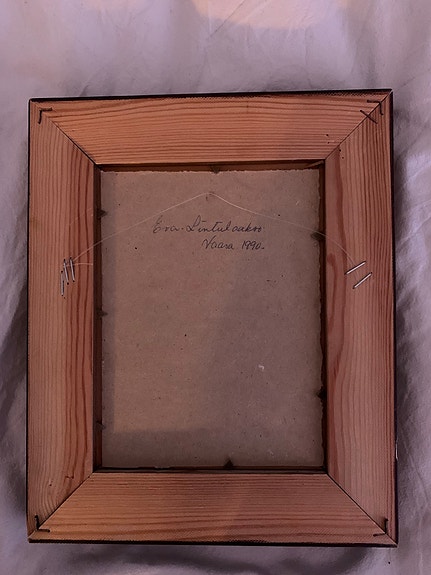 Eva. Lintulaakso
Vaasa 1890.